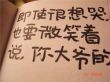 即使很想哭
也要微笑着
说,你大爷的